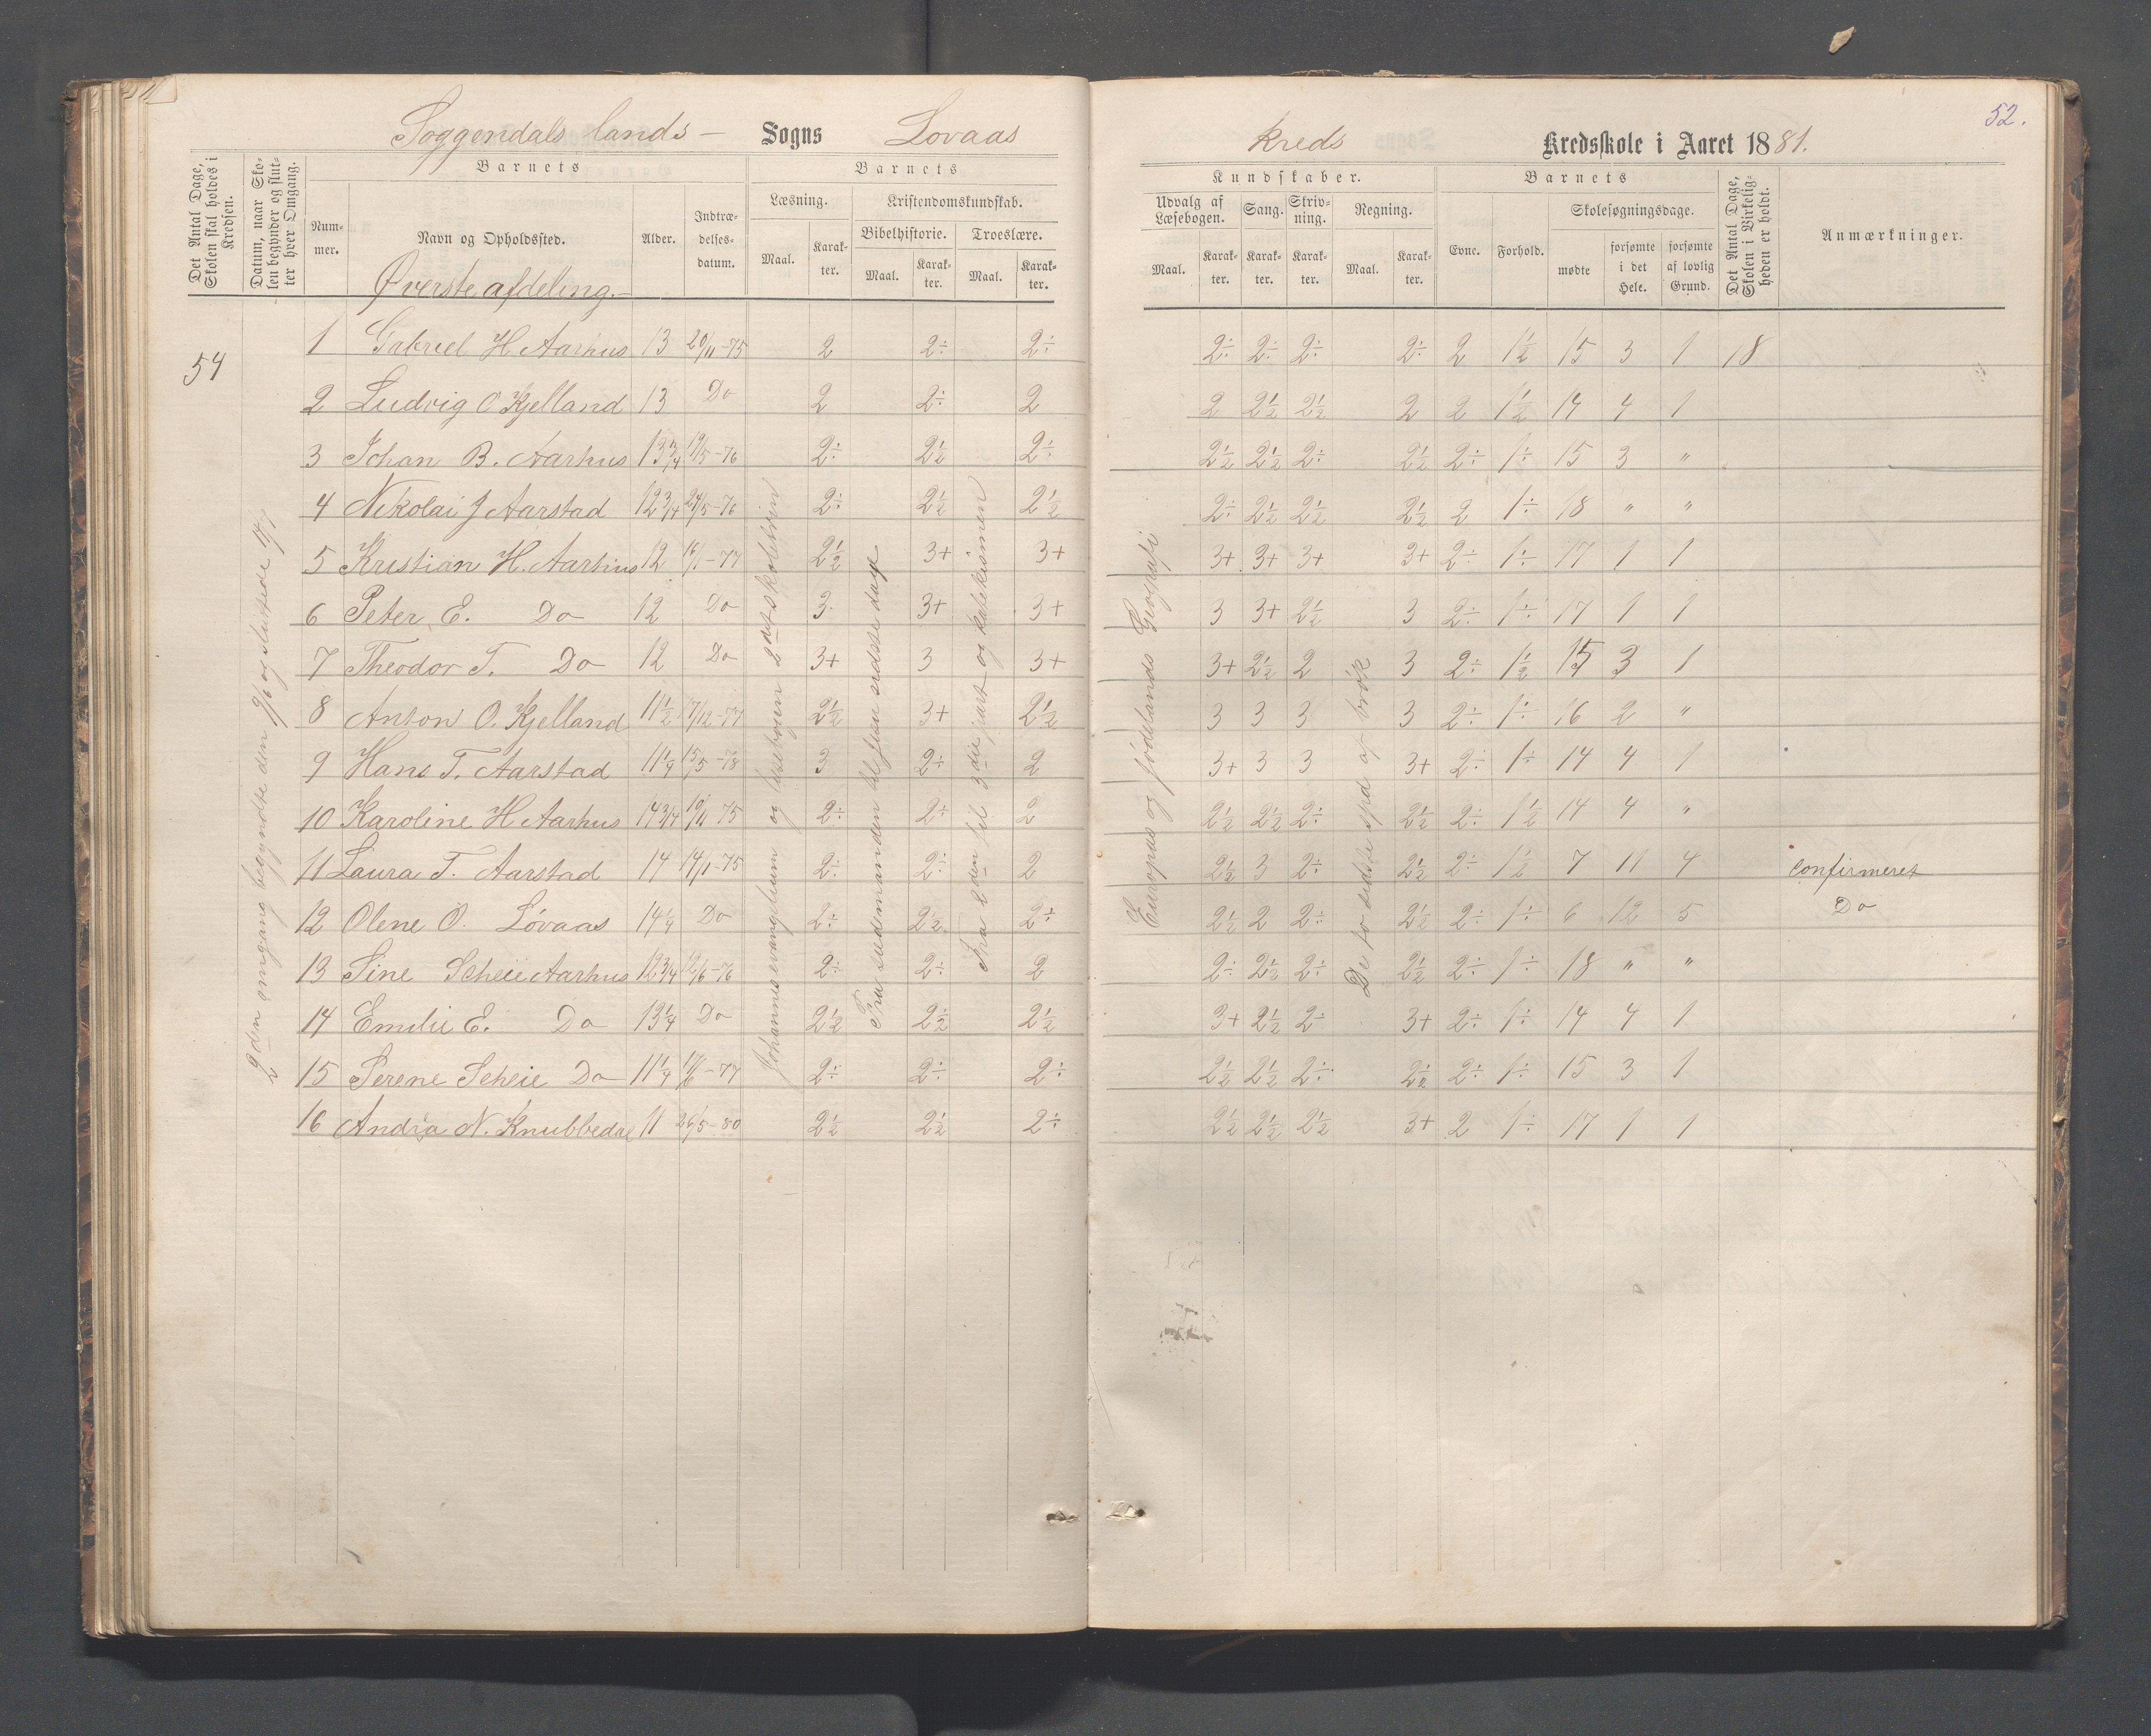 52.
Soggendals lands- Sogns Lovaas kreds Kredsskole i Aaret 1881.
Det Antal Dage, Skolen skal holdes i Kredsen.
Datum, naar Skolen begynder og slutter hver Omgang.
Barnets
Nummer.
Navn og Opholdssted.
Alder.
Indtrædelsesdatum.
Barnets
Læsning.
Maal. Karakter.
Kristendomskundskab.
Bibelhistorie. Troeslære.
Maal. Karakter. Maal. Karakter.
Kundskaber.
Udvalg af Læsebogen. Sang. Skrivning. Regning.
Maal. Karakter. Karakter. Karakter. Maal. Karakter.
Barnets
Evne. Forhold.
Skolesøgningsdage.
mødte forsømte i det Hele. forsømte af lovlig Grund.
Det Antal Dage, Skolen i Virkeligheden er holdt.
Anmærkninger.
Øverste afdeling.-
54
2den omgang begyndte den 9/6 og sluttede
Johannes evangelium og læsebogen 2det skoletrin
Fra sædemanden til Jesu sidste dage
Fra 2den til 3die part og katekismen
Europas og Jødelands Geografi
De to sidste spd af brök
1 Gabriel H Aarhus 13 20/11-75 2 2÷ 2÷ 2÷ 2÷ 2÷ 2÷ 2 1½ 15 3 1 18
2 Ludvig O Kjelland 13 Do 2 2÷ 2 2 2½ 2½ 2 2 1½ 14 4 1
3 Johan B. Aarhus 13¾ 19/5-76 2÷ 2½ 2÷ 2½ 2½ 2÷ 2½ 2÷ 1÷ 15 3 "
4 Nikolai J Aarstad 12¾ 24/5-76 2÷ 2½ 2½ 2÷ 2½ 2½ 2½ 2 1÷ 18 " "
5 Kristian H. Aarhus 12 16/1-77 2½ 3+ 3+ 3+ 3+ 3+ 3+ 2÷ 1÷ 17 1 1
6 Peter E. Do 12 Do 3 3+ 3+ 3 3+ 2½ 3 2÷ 1÷ 17 1 1
7 Theodor T. Do 12 Do 3+ 3 3+ 3+ 2½ 2 3 2÷ 1½ 15 3 1
8 Anton O. Kjelland 11½ 17/12-77 2½ 3+ 2½ 3 3 3 3 2÷ 1÷ 16 2 "
9 Hans T. Aarstad 11¼ 15/5-78 3 2÷ 2 3+ 3 3 3+ 2÷ 1÷ 14 4 1
10 Karoline H Aarhus 14¾ 19/11-75 2÷ 2÷ 2 2½ 2½ 2÷ 2½ 2÷ 1½ 14 4 "
11 Laura T. Aarstad 14 14/11-75 2÷ 2÷ 2 2½ 3 2÷ 2½ 2÷ 1½ 7 11 4 confirmeret
12 Olene O. Lövaas 14¼ Do 2÷ 2½ 2÷ 2½ 2 2÷ 2½ 2÷ 1÷ 6 12 5 Do
13 Sine Scheie Aarhus 12¾ 12/6-76 2÷ 2÷ 2 2÷ 2½ 2÷ 2½ 2÷ 1÷ 18 " "
14 Emilie E. Do 13¼ Do 2½ 2½ 2½ 3+ 2½ 2÷ 3+ 2÷ 1÷ 14 4 1
15 Serene Scheie Do 11¼ 11/6-77 2÷ 2÷ 2÷ 2½ 2½ 2÷ 2½ 2÷ 1÷ 15 3 1
16 Andrea N. Knubbedal 11 26/5-80 2½ 2½ 2÷ 2½ 2½ 2½ 3+ 2 1÷ 17 1 1